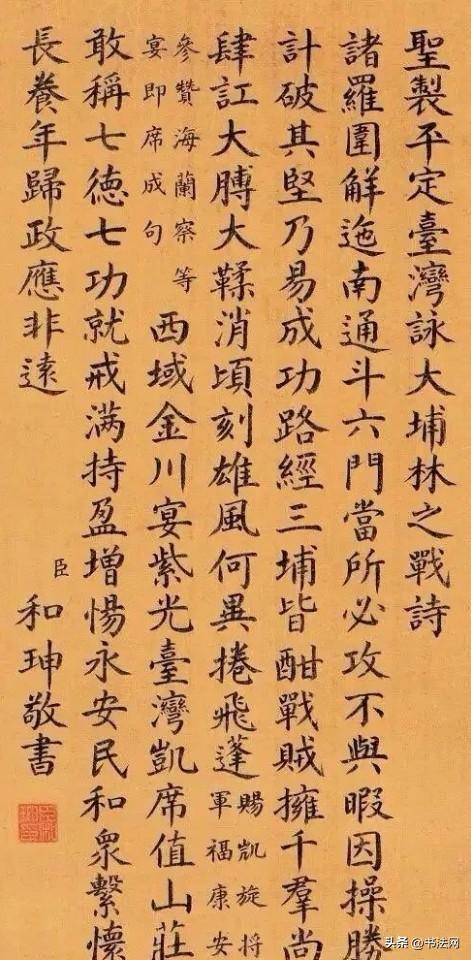 聖製平定臺灣詠大埔林之戰詩
諸羅圍解迤南通斗六門當所必攻不與暇因操勝
計破其堅乃易成功路經三埔皆酣戰賊擁千羣尚
肆訌大膊大鞣消頃刻雄風何異捲飛蓬
賜凱旋將
軍福康安
參贊海蘭察等
宴即席成句
西域金川宴紫光臺灣凱席值山莊
敢稱七德七功就戒滿持盈增惕永安民和衆繫懷
長養年歸政應非遠
臣和珅敬書
头条 @书法网